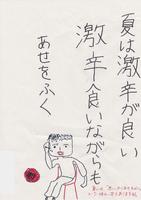 夏は激辛が良い
激辛食いながらも
あせをふく